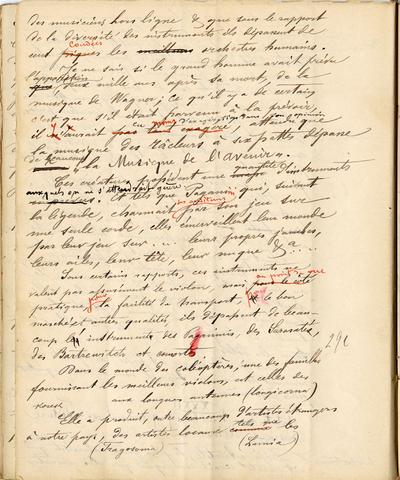 des musiciens hors ligne & que sous le rapport
de la diversité des instruments ils dépassent de
cent coudées les meilleurs orchestres humains.
Je ne sais si le grand homme avait prévu
l'apparition deux mille ans après sa mort, de la
musique de Wagner; ce qu'il y a de certain
c'est que s'il était parvenu à la prévoir,
il n'aurait pas exagéré, attendu que
la musique des râcleurs à six pattes dépasse
de beaucoup "la Musique de l'avenir".
Ces créatures possèdent une quantité d'instruments
auxquels on ne s'attendrait guère. Et tels que Paganini qui, suivant
la légende, charmait les auditeurs par son jeu sur
une seule corde, elles émerveillent leur monde
par leur jeu sur.... leurs propres jambes,
leurs ailes, leur tête, leur nuque &a....
Sous certains rapports, ces instruments ne
valent pas assurément le violon, mais au point de vue
pratique, la facilité du transport, le bon
marché et autres qualités, ils dépassent de beau-
coup les instruments des Paganinis, des Sarasates,
des Barbewitch et consorts.
291
Dans le monde des coléoptères, une des familles
fournissant les meilleurs violons, est celles des
aux longues antennes (Longicorna)
Elle a produit, outre beaucoup d'artistes étrangers
à notre pays, des artistes locaux tels que les
(Tragosoma) (Lamia)